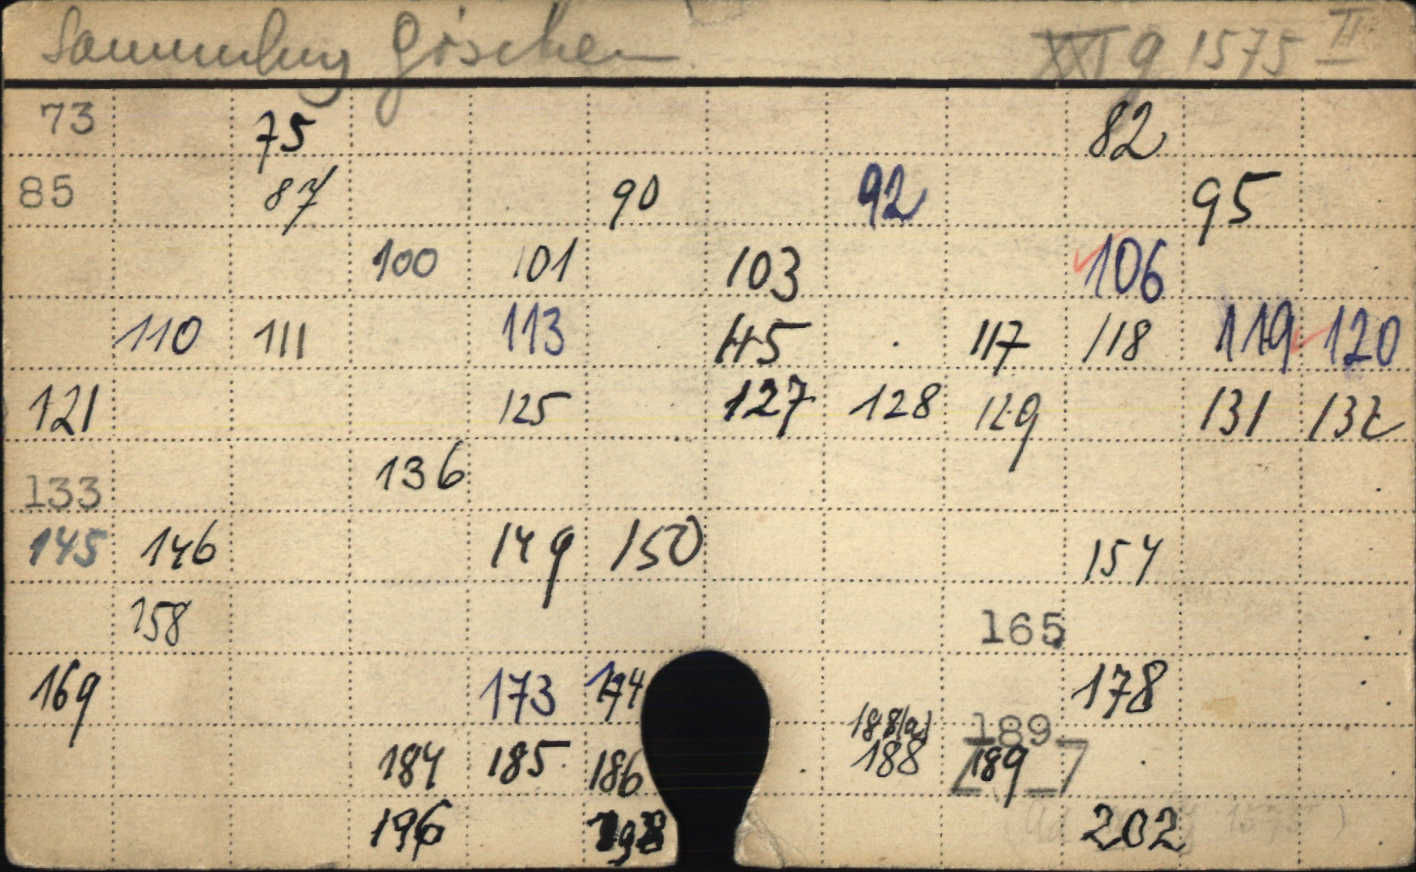 Sammlung Göschen XXI g 1575 II
73 75 82
85 87 90 92 95
100 101 103 106
110 111 113 115 117 118 119 120
121 125 127 128 129 131 132
133 136
145 146 149 150 154
158 165
169 173 174 178
188(a) 189
184 185 186 188 [189]
196 198 202